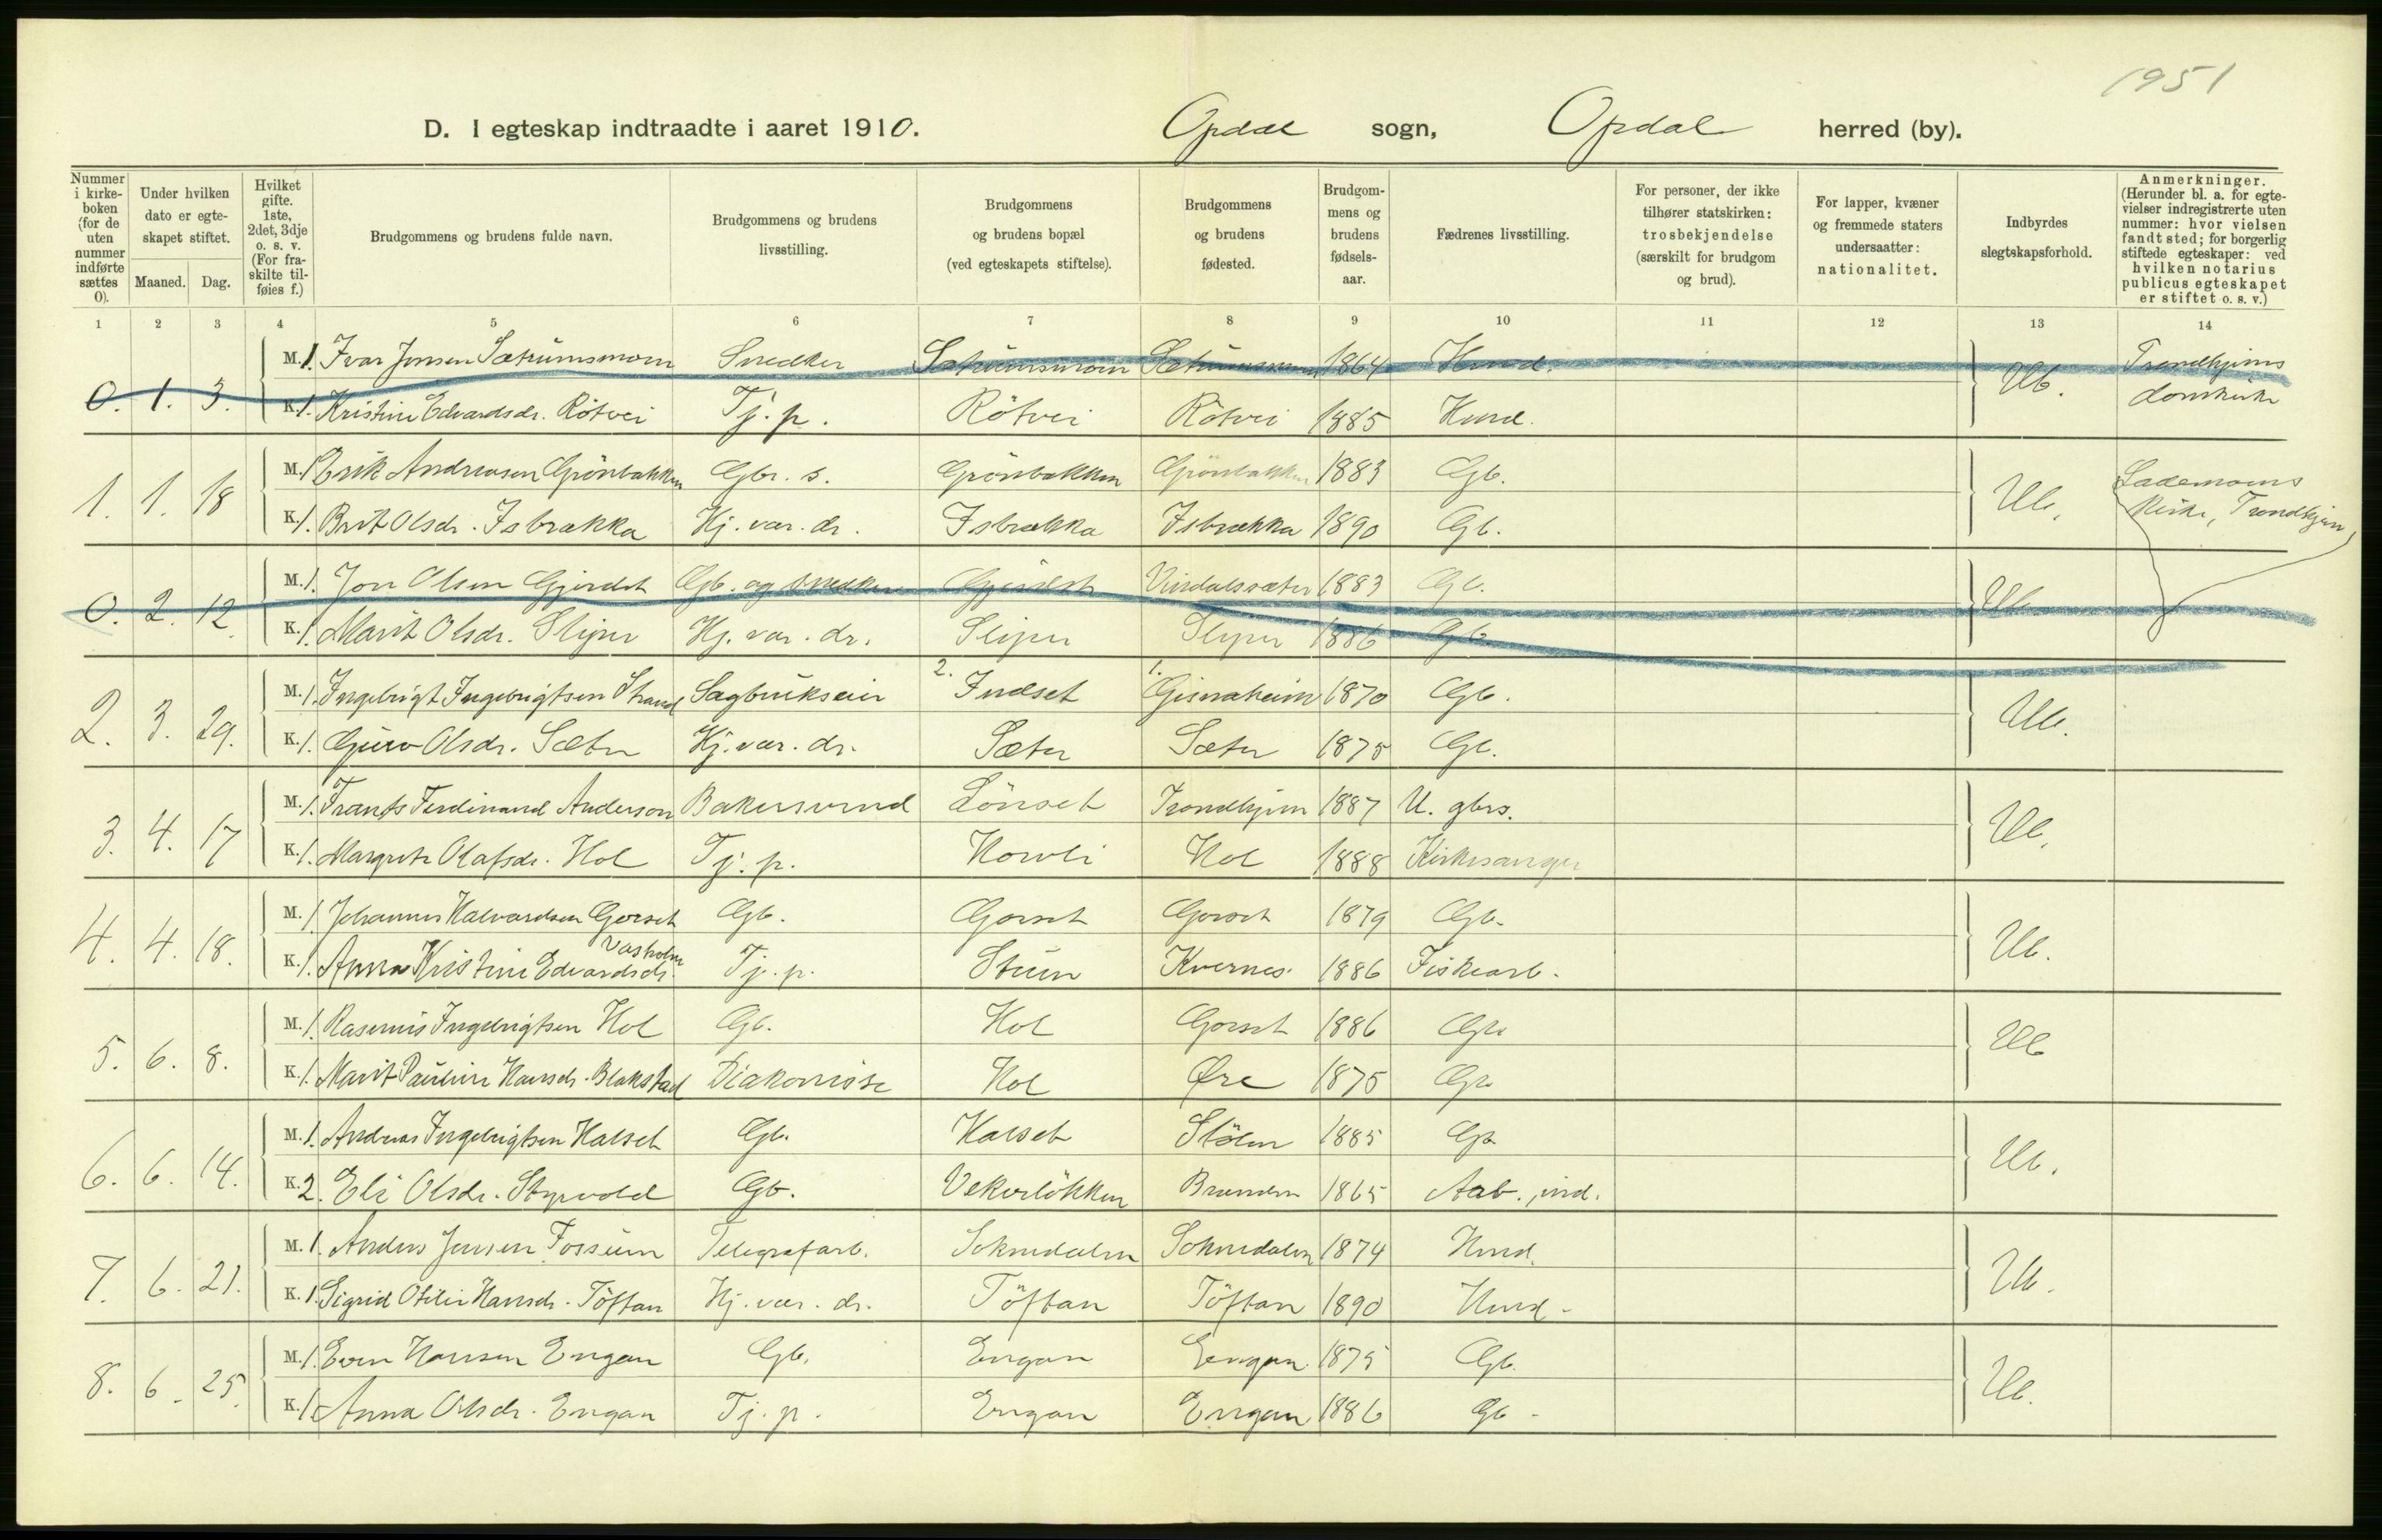 1951
D. I egteskap indtraadte i aaret 1910. Opdal sogn, Opdal herred (by).
Nummer i kirke-boken (for de uten nummer indførte sættes 0).
Under hvilken dato er egte-skapet stiftet.
Maaned. Dag.
Hvilket gifte. 1ste, 2det, 3dje o. s. v. (For fra-skilte til-føies f.)
Brudgommens og brudens fulde navn.
Brudgommens og brudens livsstilling.
Brudgommens og brudens bopæl (ved egteskapets stiftelse).
Brudgommens og brudens fødested.
Brudgom-mens og brudens fødsels-aar.
Fædrenes livsstilling.
For personer, der ikke tilhører statskirken: trosbekjendelse (særskilt for brudgom og brud).
For lapper, kvæner og fremmede staters undersaatter: nationalitet.
Indbyrdes slegtskapsforhold.
Anmerkninger. (Herunder bl. a. for egte-vielser indregistrerte uten nummer: hvor vielsen fandt sted; for borgerlig stiftede egteskaper: ved hvilken notarius publicus egteskapet er stiftet o. s. v.)
1 2 3 4 5 6 7 8 9 10 11 12 13 14
0. 1. 3. M. 1. Ivar Jonsen Sætrumsmoen Snedker Sætrumsmoen Sætrumsmoen 1864 Husd. Ub. Trondhjems domkirke
K. 1. Kristine Edvardsdr. Rötvei Tj. p. Rötvei Rötvei 1885 Husd.
1. 1. 18 M. 1. Erik Andreasen Grönbakken Gbr. s. Grönbakken Grönbakken 1883 Gb. Ub. Lademoens kirke, Trondhjem
K. 1. Brit Olsdr. Isbrækka Hj. vær. dr. Isbrækka Isbrækka 1890 Gb.
0. 2. 12. M. 1. Jon Olsen Gjerdet Gb. og snedker Gjerdet Vindalssæter 1883 Gb. Ub.
K. 1. Marit Olsdr. Sliper Hj. vær. dr. Sliper Sliper 1886 Gb.
2. 3. 29. M. 1. Ingebrigt Ingebrigtsen Strand Sagbrukseier 2. Indset 1. Gisnaheim 1870 Gb. Ub.
K. 1. Guro Olsdr. Sæter Hj. vær. dr. Sæter Sæter 1875 Gb.
3. 4. 17 M. 1. Frants Ferdinand Anderson Bakersvend Lönset Trondhjem 1887 U. gbrs. Ub.
K. 1. Margrete Olafsdr. Hol Tj. p. Hovli Hol 1888 Kirkesanger
4. 4. 18. M. 1. Johannes Halvardsen Gorset Gb. Gorset Gorset 1879 Gb. Ub.
K. 1. Anna Kristine Edvardsdr. Vasholm Tj. p. Stuen Kvernes 1886 Fiskearb.
5. 6. 8. M. 1. Rasmus Ingebrigtsen Hol Gb. Hol Gorset 1886 Gb. Ub
K. 1. Marit Pauline Hansdr. Blakstad Diakonisse Hol Øre 1875 Gb
6. 6. 14. M. 1. Andreas Ingebrigtsen Halset Gb. Halset Stölen 1885 Gb Ub.
K. 2. Eli Olsdr. Styrvold Gb. Vekerlökken 1865 Aab., ind.
7. 6. 21. M. 1. Anders Jensen Fossum Telegrafarb. Soknedalen Soknedalen 1874 Husd. Ub.
K. 1. Sigrid Otilie Hansdr. Töftan Hj. vær. dr. Töftan Töftan 1890 Husd.
8. 6. 25. M. 1. Even Hansen Engan Gb. Engan Engan 1875 Gb. Ub.
K. 1. Anna Olsdr. Engan Tj. p. Engan Engan 1886 Gb.